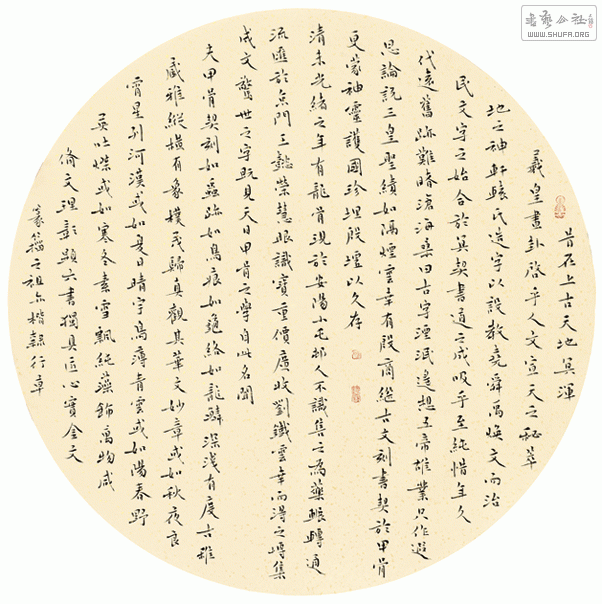 昔在上古天地冥渾
羲皇畫卦啓乎人文宣天之秘萃
地之神軒轅氏造字以設教堯舜禹煥文而治
民文字之始合於其契書道之成吸乎至純惜年久
代遠舊跡難睹滄海桑田古字湮泯遙想五帝雄業只作遐
思論説三皇聖績如隔煙雲幸有殷商繼古文刻書契於甲骨
更蒙神靈護國珍埋殷墟以久存
清末光緒之年有龍骨現於安陽小屯邨人不識集之為藥輾轉通
流匯於京門王懿榮慧眼識寶重價廣收劉鐵雲幸而得之專集
成文驚世之字既見天日甲骨之學自此名聞
夫甲骨契刻如蟲跡如鳥痕如龜絡如龍鱗深淺有度古雅
雅縱橫有象樸茂歸真觀其華文妙章或如秋夜良
宵星列河漢或如夏日晴宇鳥薄青雲或如陽春野
英吐蝶或如寒冬素雪飄純藻飾萬物咸
備文理彰顯六書獨具匠心實金文
篆籀之祖亦楷隸行草
書藝公社
WWW.SHUFA.ORG